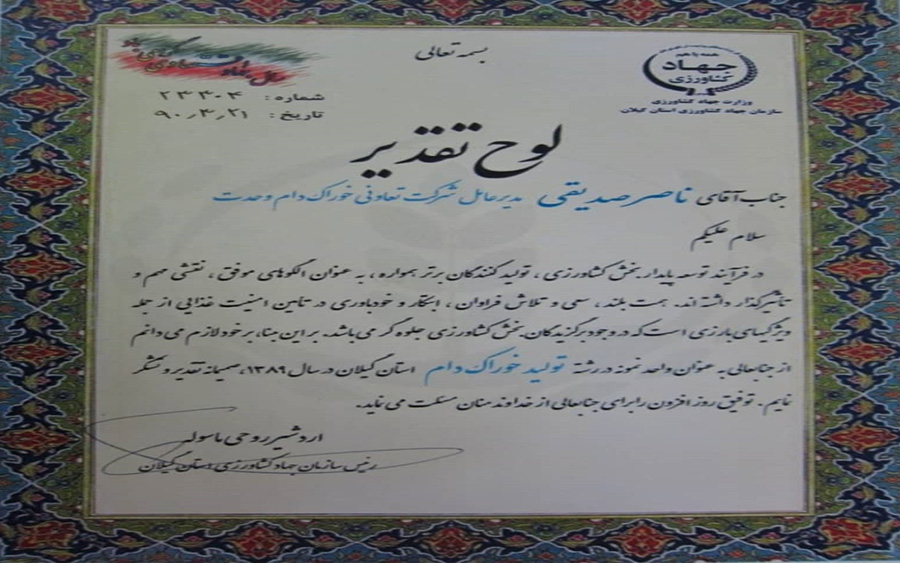 بسمه تعالی
همه با هم
جهاد
کشاورزی
وزارت جهاد کشاورزی
سازمان جهاد کشاورزی استان گیلان
شماره : ۲۳۴۰۴
تاریخ : ۹۰/۳/۲۱
لوح تقدیر
جناب آقای ناصر صدیقی مدیرعامل شرکت تعاونی خوراک دام وحدت
سلام علیکم
در فرآیند توسعه پایدار بخش کشاورزی ، تولیدکنندگان برتر همواره ، به عنوان الگوهای موفق ، نقشی مهم و
تاثیرگذار داشته اند. همت بلند ، سعی و تلاش فراوان ، ابتکار و خودباوری در تامین امنیت غذایی از جمله
ویژگیهای بارزی است که در وجود برگزیدگان بخش کشاورزی جلوه گر می باشد. بر این مبنا، بر خود لازم می دانم
از جنابعالی به عنوان واحد نمونه در رشته تولید خوراک دام استان گیلان در سال ۱۳۸۹، صمیمانه تقدیر و تشکر
نمایم . توفیق روز افزون را برای جنابعالی از خداوند منان مسئلت می نماید.
اردشیر روحی ماسوله
رئیس سازمان جهاد کشاورزی استان گیلان